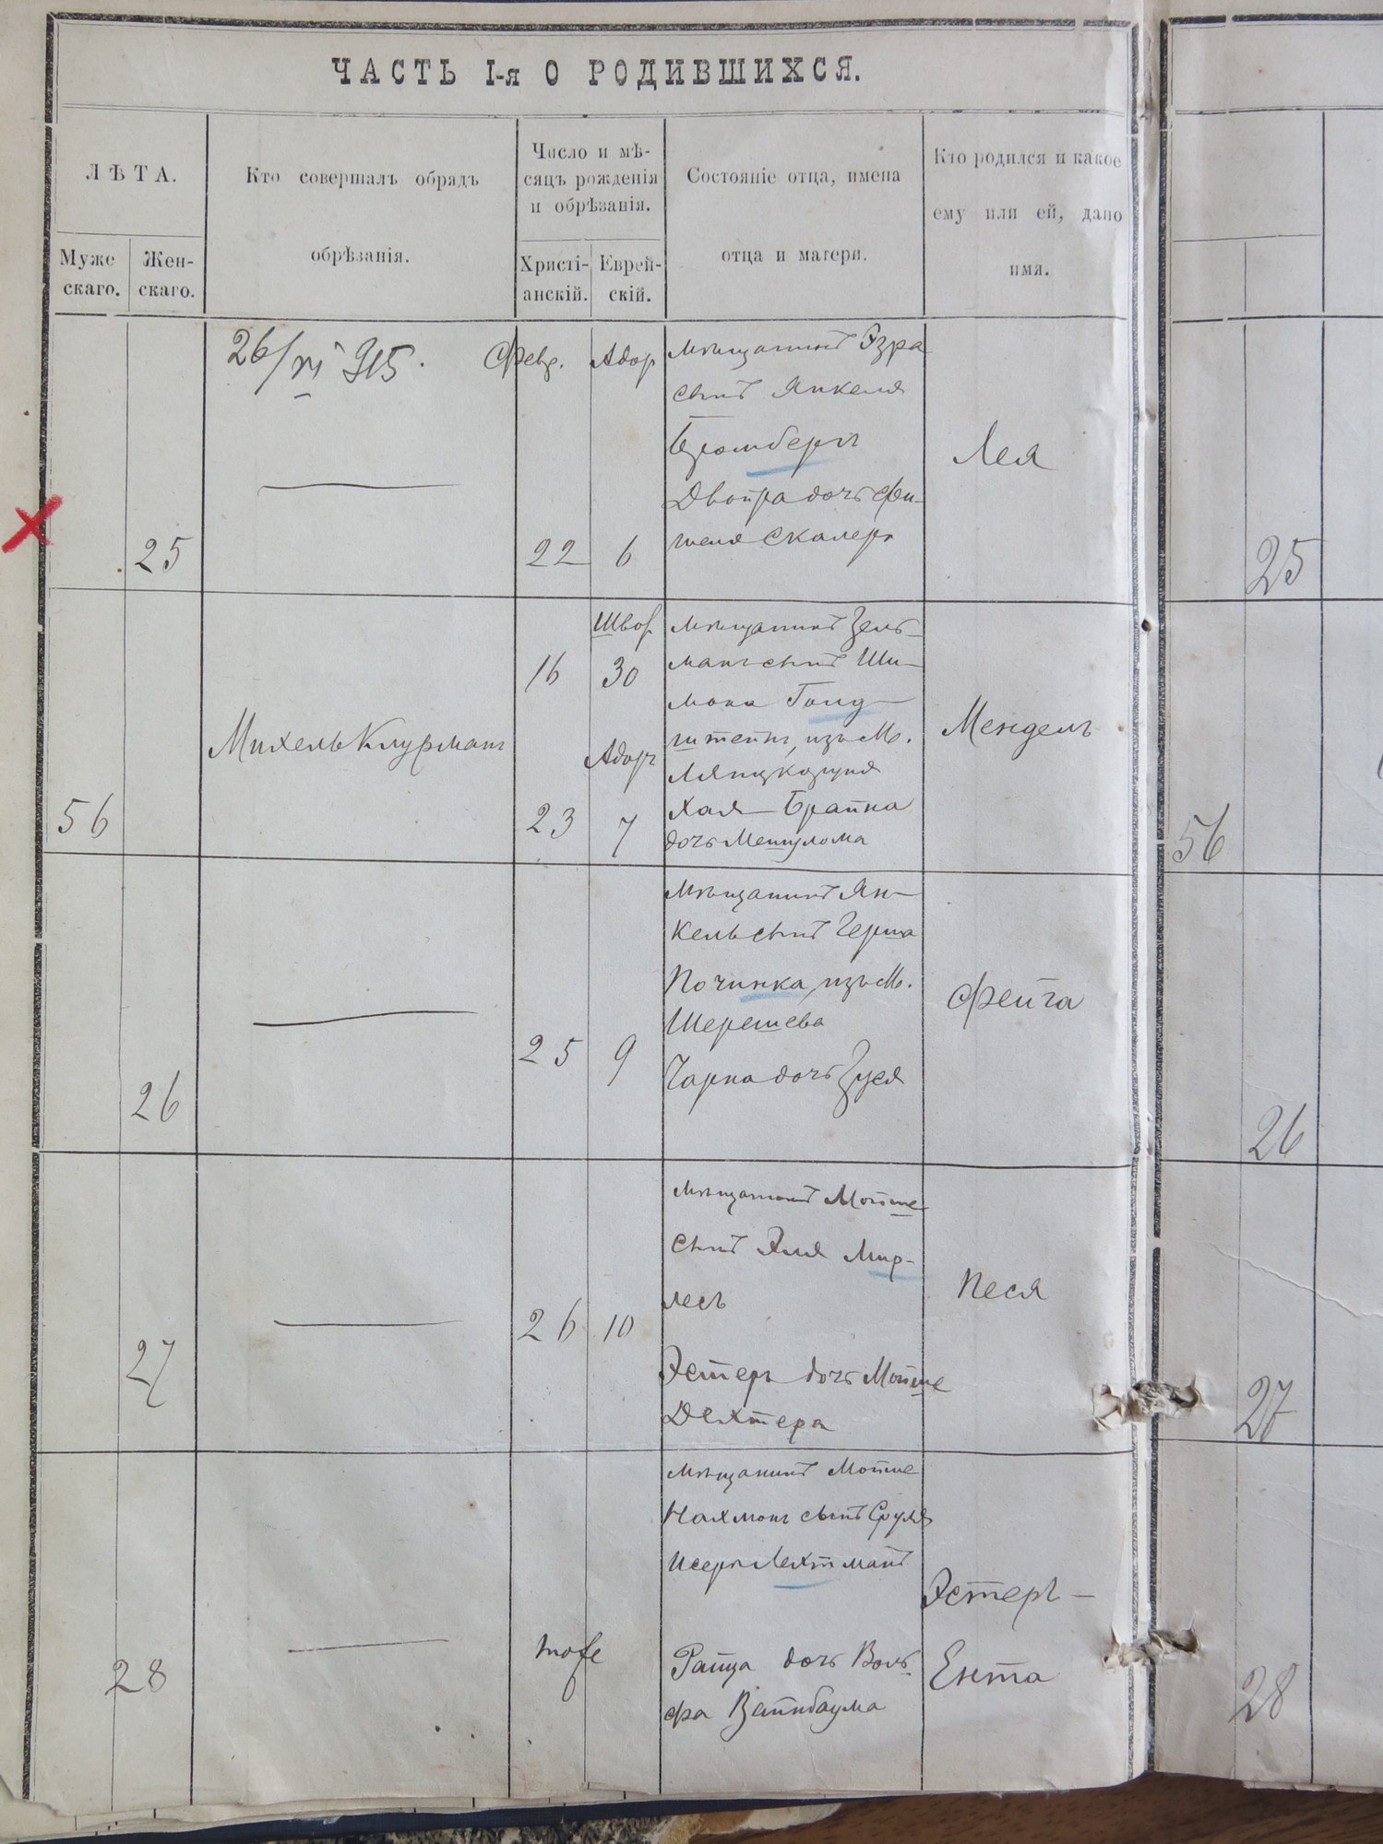 ЧАСТЬ I-я О РОДИВШИХСЯ.
ЛѢТА.
Муже
скаго.
Жен-
скаго.
Кто совершалъ обрядъ
обрѣзанія.
Число и мѣ-
сяцъ рожденія
и обрѣзанія.
Христі-
анскій.
Еврей-
скій.
Состояніе отца, имена
отца и матери.
Кто родился и какое
ему или ей, дано
имя.
26/VI 915.
Февр.
Адар
25
22
6
Мѣщанинъ Эзра
сынъ Янкеля
Бромбергъ
Двойра дочь Фи-
шеля Скалеръ
Лея
25
56
Михель Клурманъ
16
Шват
30
23
Адаръ
7
Мѣщанинъ Зель-
манъ сынъ Ши-
мона Голд-
штейнъ, изъ М.
Хая-Брайна
дочь Мешулома
Мендель
56
26
25
9
Мѣщанинъ Ян-
кель сынъ Герша
Починка, изъ М.
Шерешева
Чарна дочь Зуся
Фейга
26
27
26
10
Мѣщанинъ Мойше
сынъ Эля Мир-
лесъ
Эстеръ дочь Мойше
Дехтера
Песя
27
28
тоже
Мѣщанинъ Мойше
Нахманъ сынъ Сруля
Исеръ Лехтманъ
Райца дочь Воль-
фа Вайнбаума
Эстеръ-
Ента
28